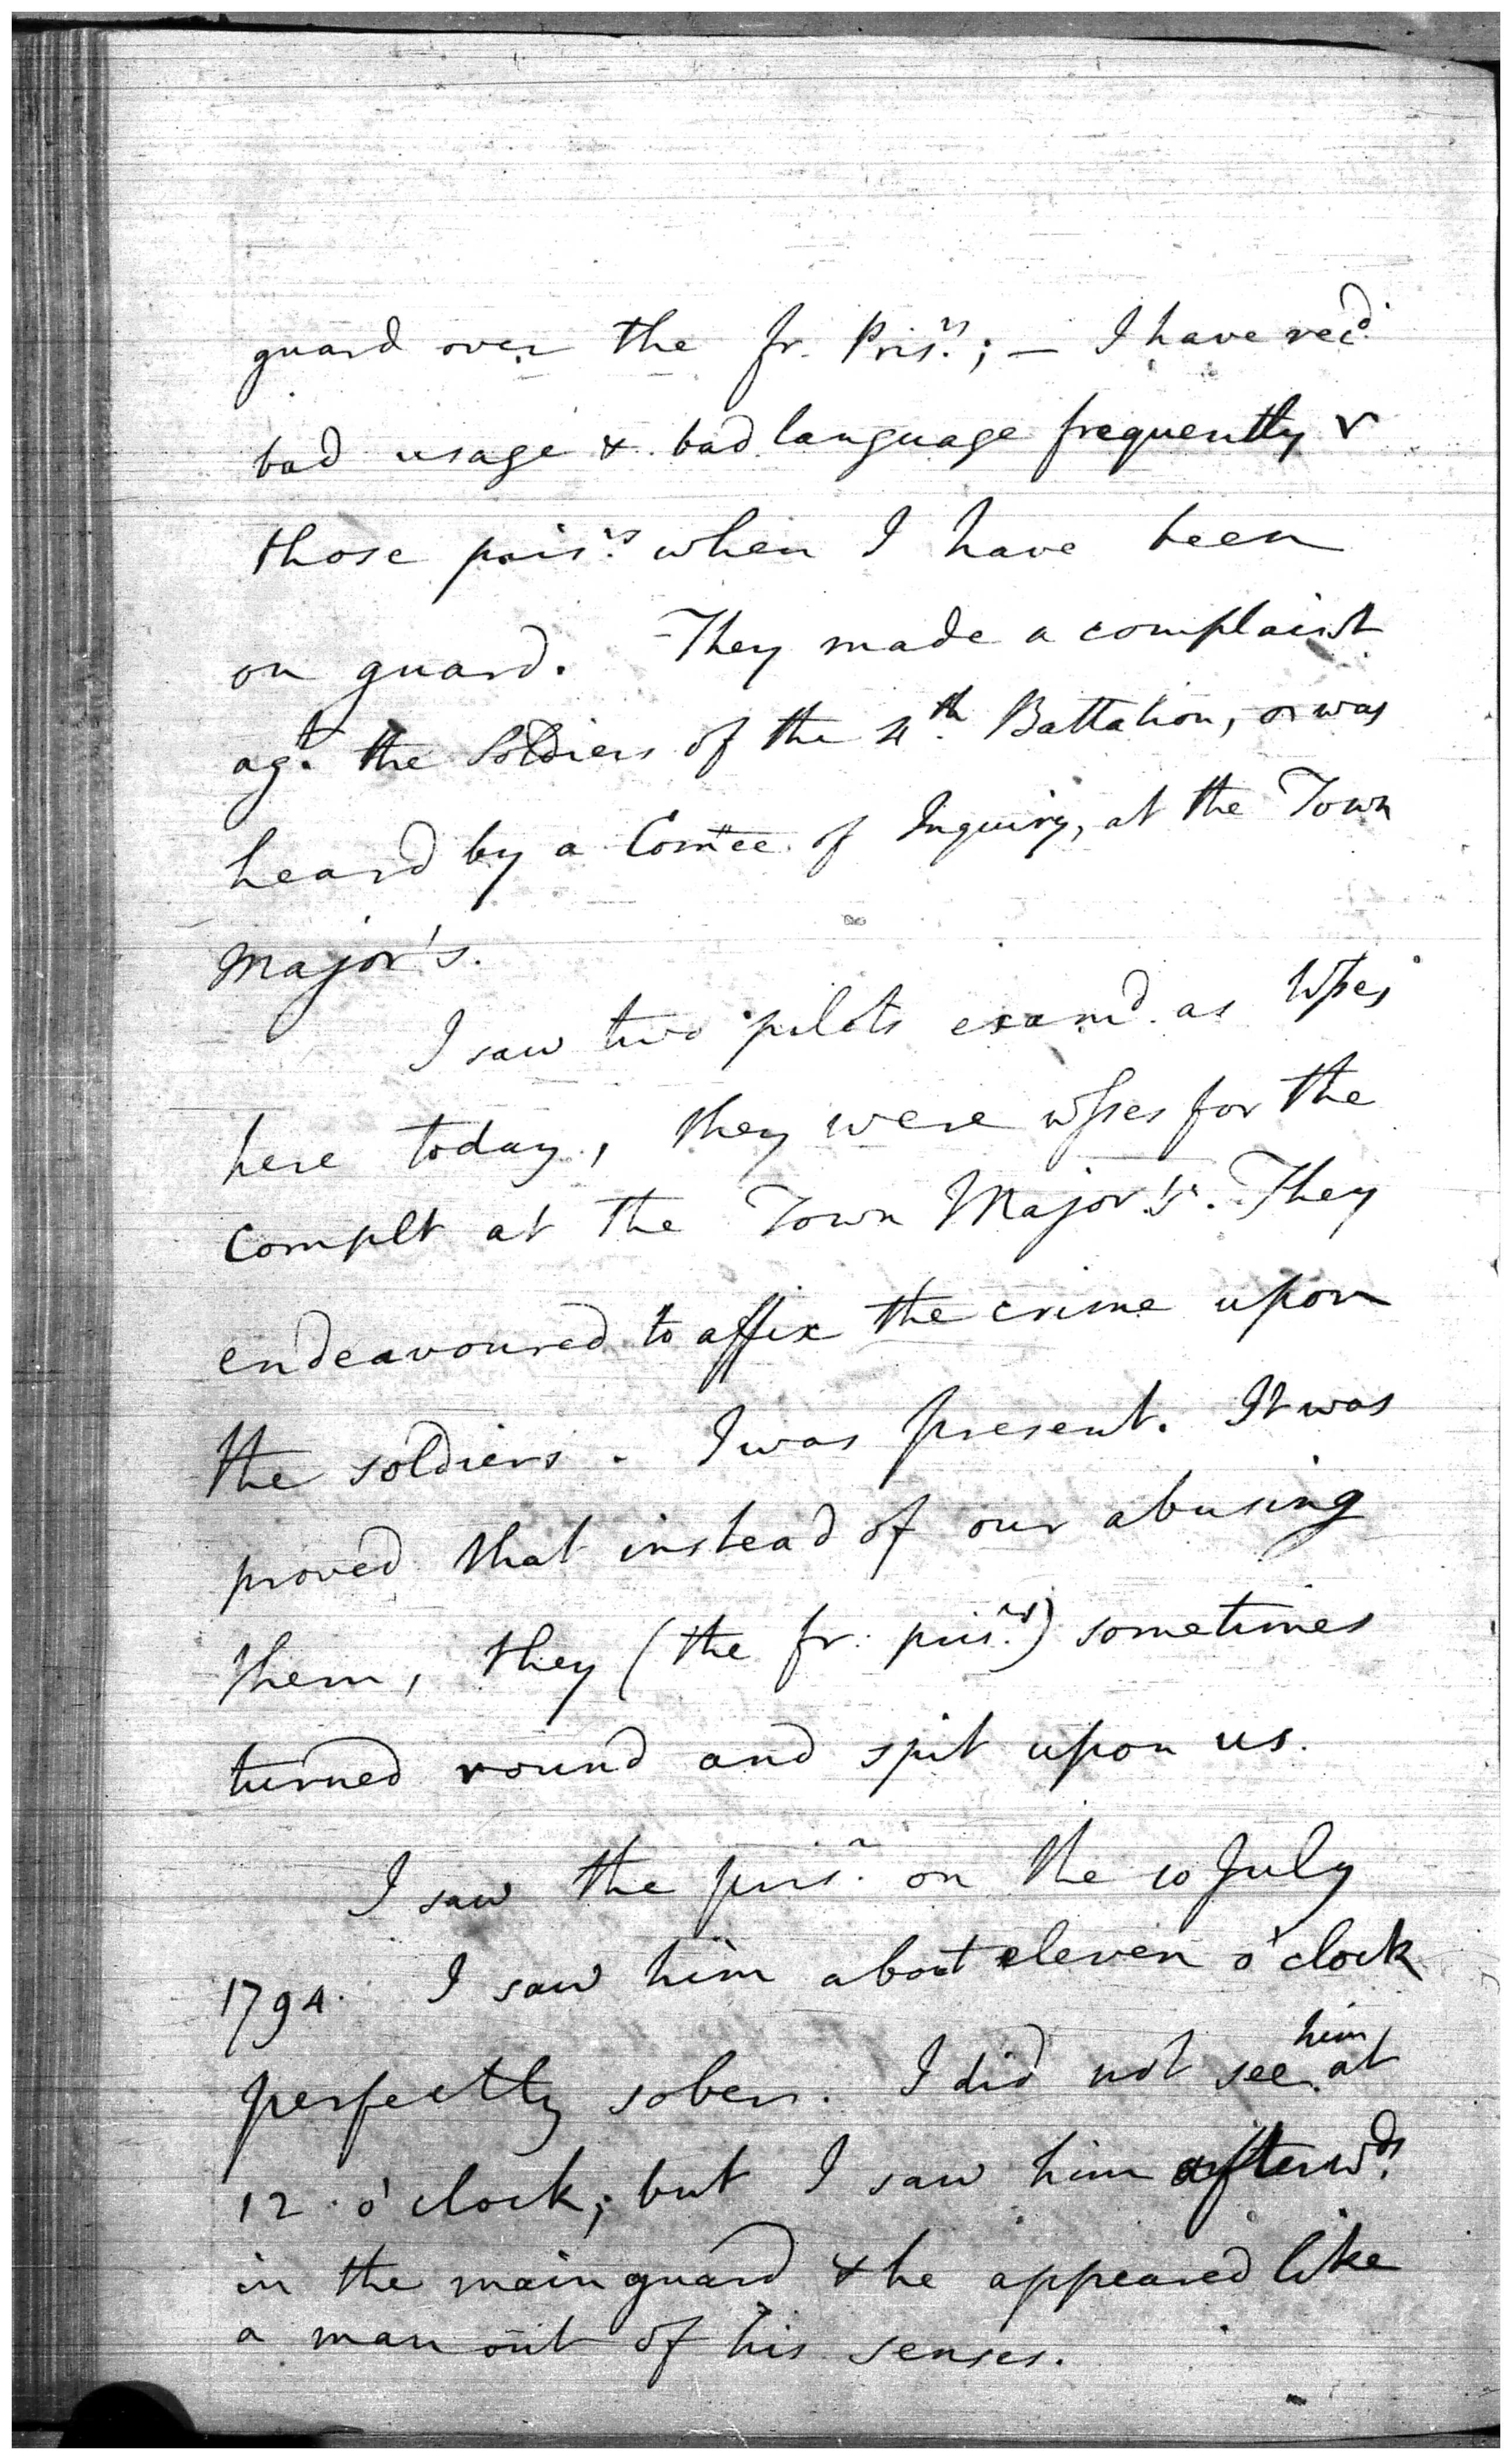 guard over the fr. Pris.rs; — I have rec.d
bad usage & bad language frequently
those pris.rs when I have been
on guard. They made a complaint
ag.t the Soldiers of the 4th Battalion, or was
heard by a Comtee of Inquiry, at the Town
Major's.
I saw two pilots examd. as Wsses
here today, they were wsses for the
complt at the Town Major's. They
endeavoured to affix the crime upon
the soldiers. I was present. It was
proved that instead of our abusing
them, they (the fr. pris.rs) sometimes
turned round and spit upon us.
I saw the pris.r on the 10 July
1794. I saw him about eleven o'clock
perfectly sober. I did not see him at
12 o'clock; but I saw him afterw.ds
in the main guard & he appeared like
a man out of his senses.